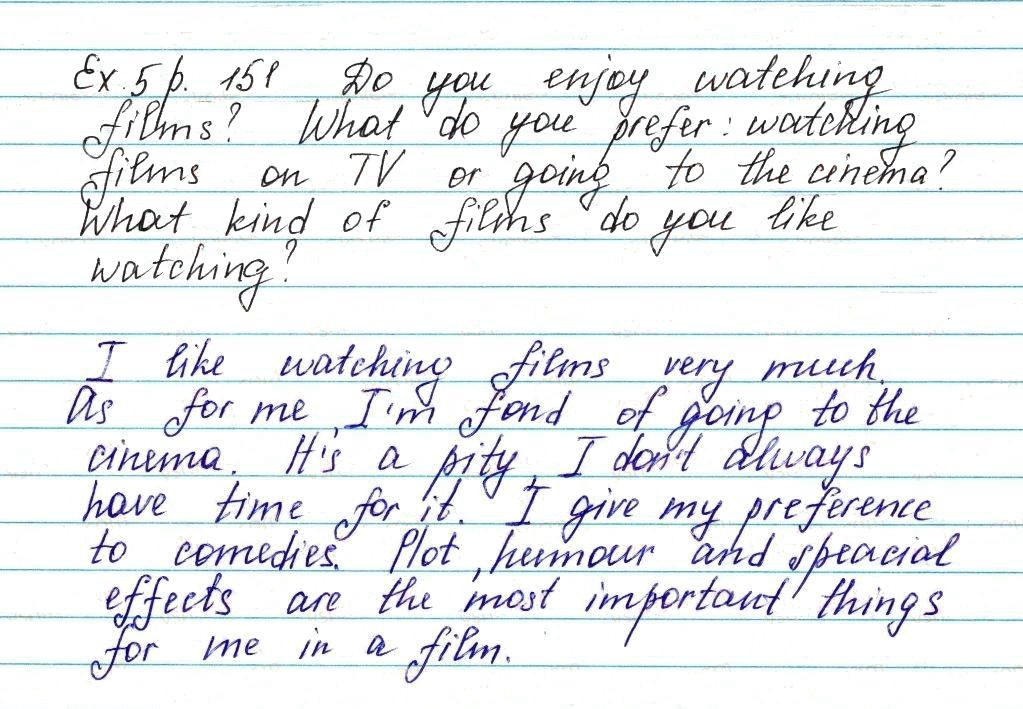 Ex. 5 p. 151 Do you enjoy watching
films? What do you prefer: watching
films on TV or going to the cinema?
What kind of films do you like
watching?
I like watching films very much.
As for me, I'm fond of going to the
cinema. It's a pity, I don't always
have time for it. I give my preference
to comedies. Plot, humour and speacial
effects are the most important things
for me in a film.